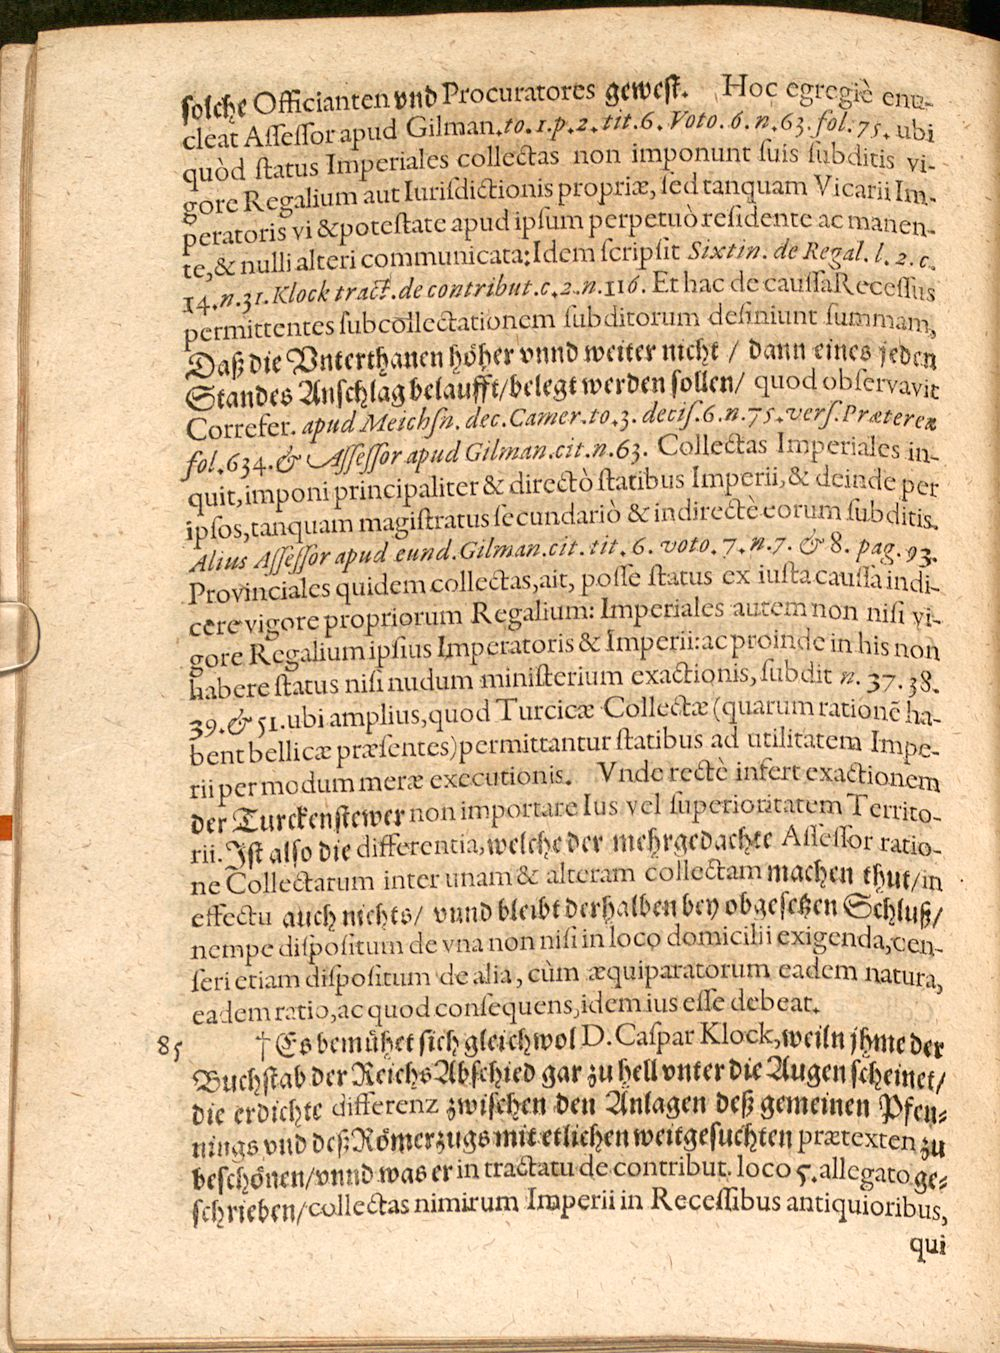 solche Officianten vnd Procuratores gewest. Hoc egregiè enu-
cleat Aſſeſſor apud Gilman.to.1.p.2.tit.6. Voto.6.n.63.fol.75. ubi
quòd ſtatus Imperiales collectas non imponunt ſuis ſubditis vi-
gore Regalium aut Iuriſdictionis propriæ, ſed tanquam Vicarii Im-
peratoris vi & poteſtate apud ipſum perpetuò reſidente ac manen-
te,& nulli alteri communicata: Idem ſcripſit Sixtin. de Regal. l. 2. c.
14.n.31. Klock tract.de contribut.c.2.n.116. Et hac de cauſſa Receſſus
permittentes ſubcollectationem ſubditorum definiunt ſummam,
Daß die Vnterthanen höher vnnd weiter nicht / dann eines jeden
Standes Anſchlag belaufft/belegt werden ſollen/ quod obſervavit
Correfer. apud Meichſn. dec. Camer.to.3. deciſ.6.n.75.verſ.Præterea
fol.634.& Aſſeſſor apud Gilman.cit.n.63. Collectas Imperiales in-
quit, imponi principaliter & directò ſtatibus Imperii,& deinde per
ipſos,tanquam magiſtratus ſecundariò & indirectè eorum ſubditis.
Alius Aſſeſſor apud eund.Gilman.cit.tit.6. voto.7.n.7. & 8. pag.93.
Provinciales quidem collectas,ait, poſſe ſtatus ex iuſta cauſſa indi-
cere vigore propriorum Regalium: Imperiales autem non niſi vi-
gore Regalium ipſius Imperatoris & Imperii: ac proinde in his non
habere ſtatus niſi nudum miniſterium exactionis, ſubdit n. 37.38.
39.& 51.ubi amplius,quod Turcicæ Collectæ (quarum rationẽ ha-
bent bellicæ præſentes) permittantur ſtatibus ad utilitatem Impe-
rii per modum meræ executionis. Vnde rectè infert exactionem
der Turckenſtewer non importare Ius vel ſuperioritatem Territo-
rii. Iſt alſo die differentia,welche der mehrgedachte Aſſeſſor ratio-
ne Collectarum inter unam & alteram collectam machen thut/in
effectu auch nichts/ vnnd bleibt derhalben bey obgeſetzen Schluß/
nempe diſpoſitum de vna non niſi in loco domicilii exigenda,cen-
ſeri etiam diſpoſitum de alia, cùm æquiparatorum eadem natura,
eadem ratio,ac quod conſequens,idem ius eſſe debeat.
85 † Es bemühet ſich gleichwol D. Caſpar Klock,weiln jhme der
Buchſtab der ReichsAbſchied gar zu hell vnter die Augen ſcheinet/
die erdichte differenz zwiſchen den Anlagen deß gemeinen Pfen-
nings vnd deß Römerzugs mit etlichen weitgeſuchten prætexten zu
beſchönen/vnnd was er in tractatu de contribut. loco 5. allegato ge-
ſchrieben/collectas nimirum Imperii in Receſſibus antiquioribus,
qui